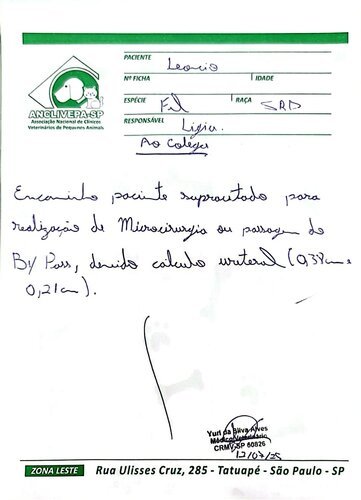 PACIENTE Leoncio
Nº FICHA IDADE
ESPÉCIE Fel RAÇA SRD
RESPONSÁVEL Ligia.
ANCLIVEPA-SP
Associação Nacional de Clínicos
Veterinários de Pequenos Animais
Ao Colega
Encaminho paciente supracitado para
realização de Microcirurgia ou passagem de
By Pass, devido cálculo ureteral (0,38cm e
0,21cm).
Yuri da Silva Alves
Médico Veterinário
CRMV-SP 60826
12/07/25
ZONA LESTE Rua Ulisses Cruz, 285 - Tatuapé - São Paulo - SP